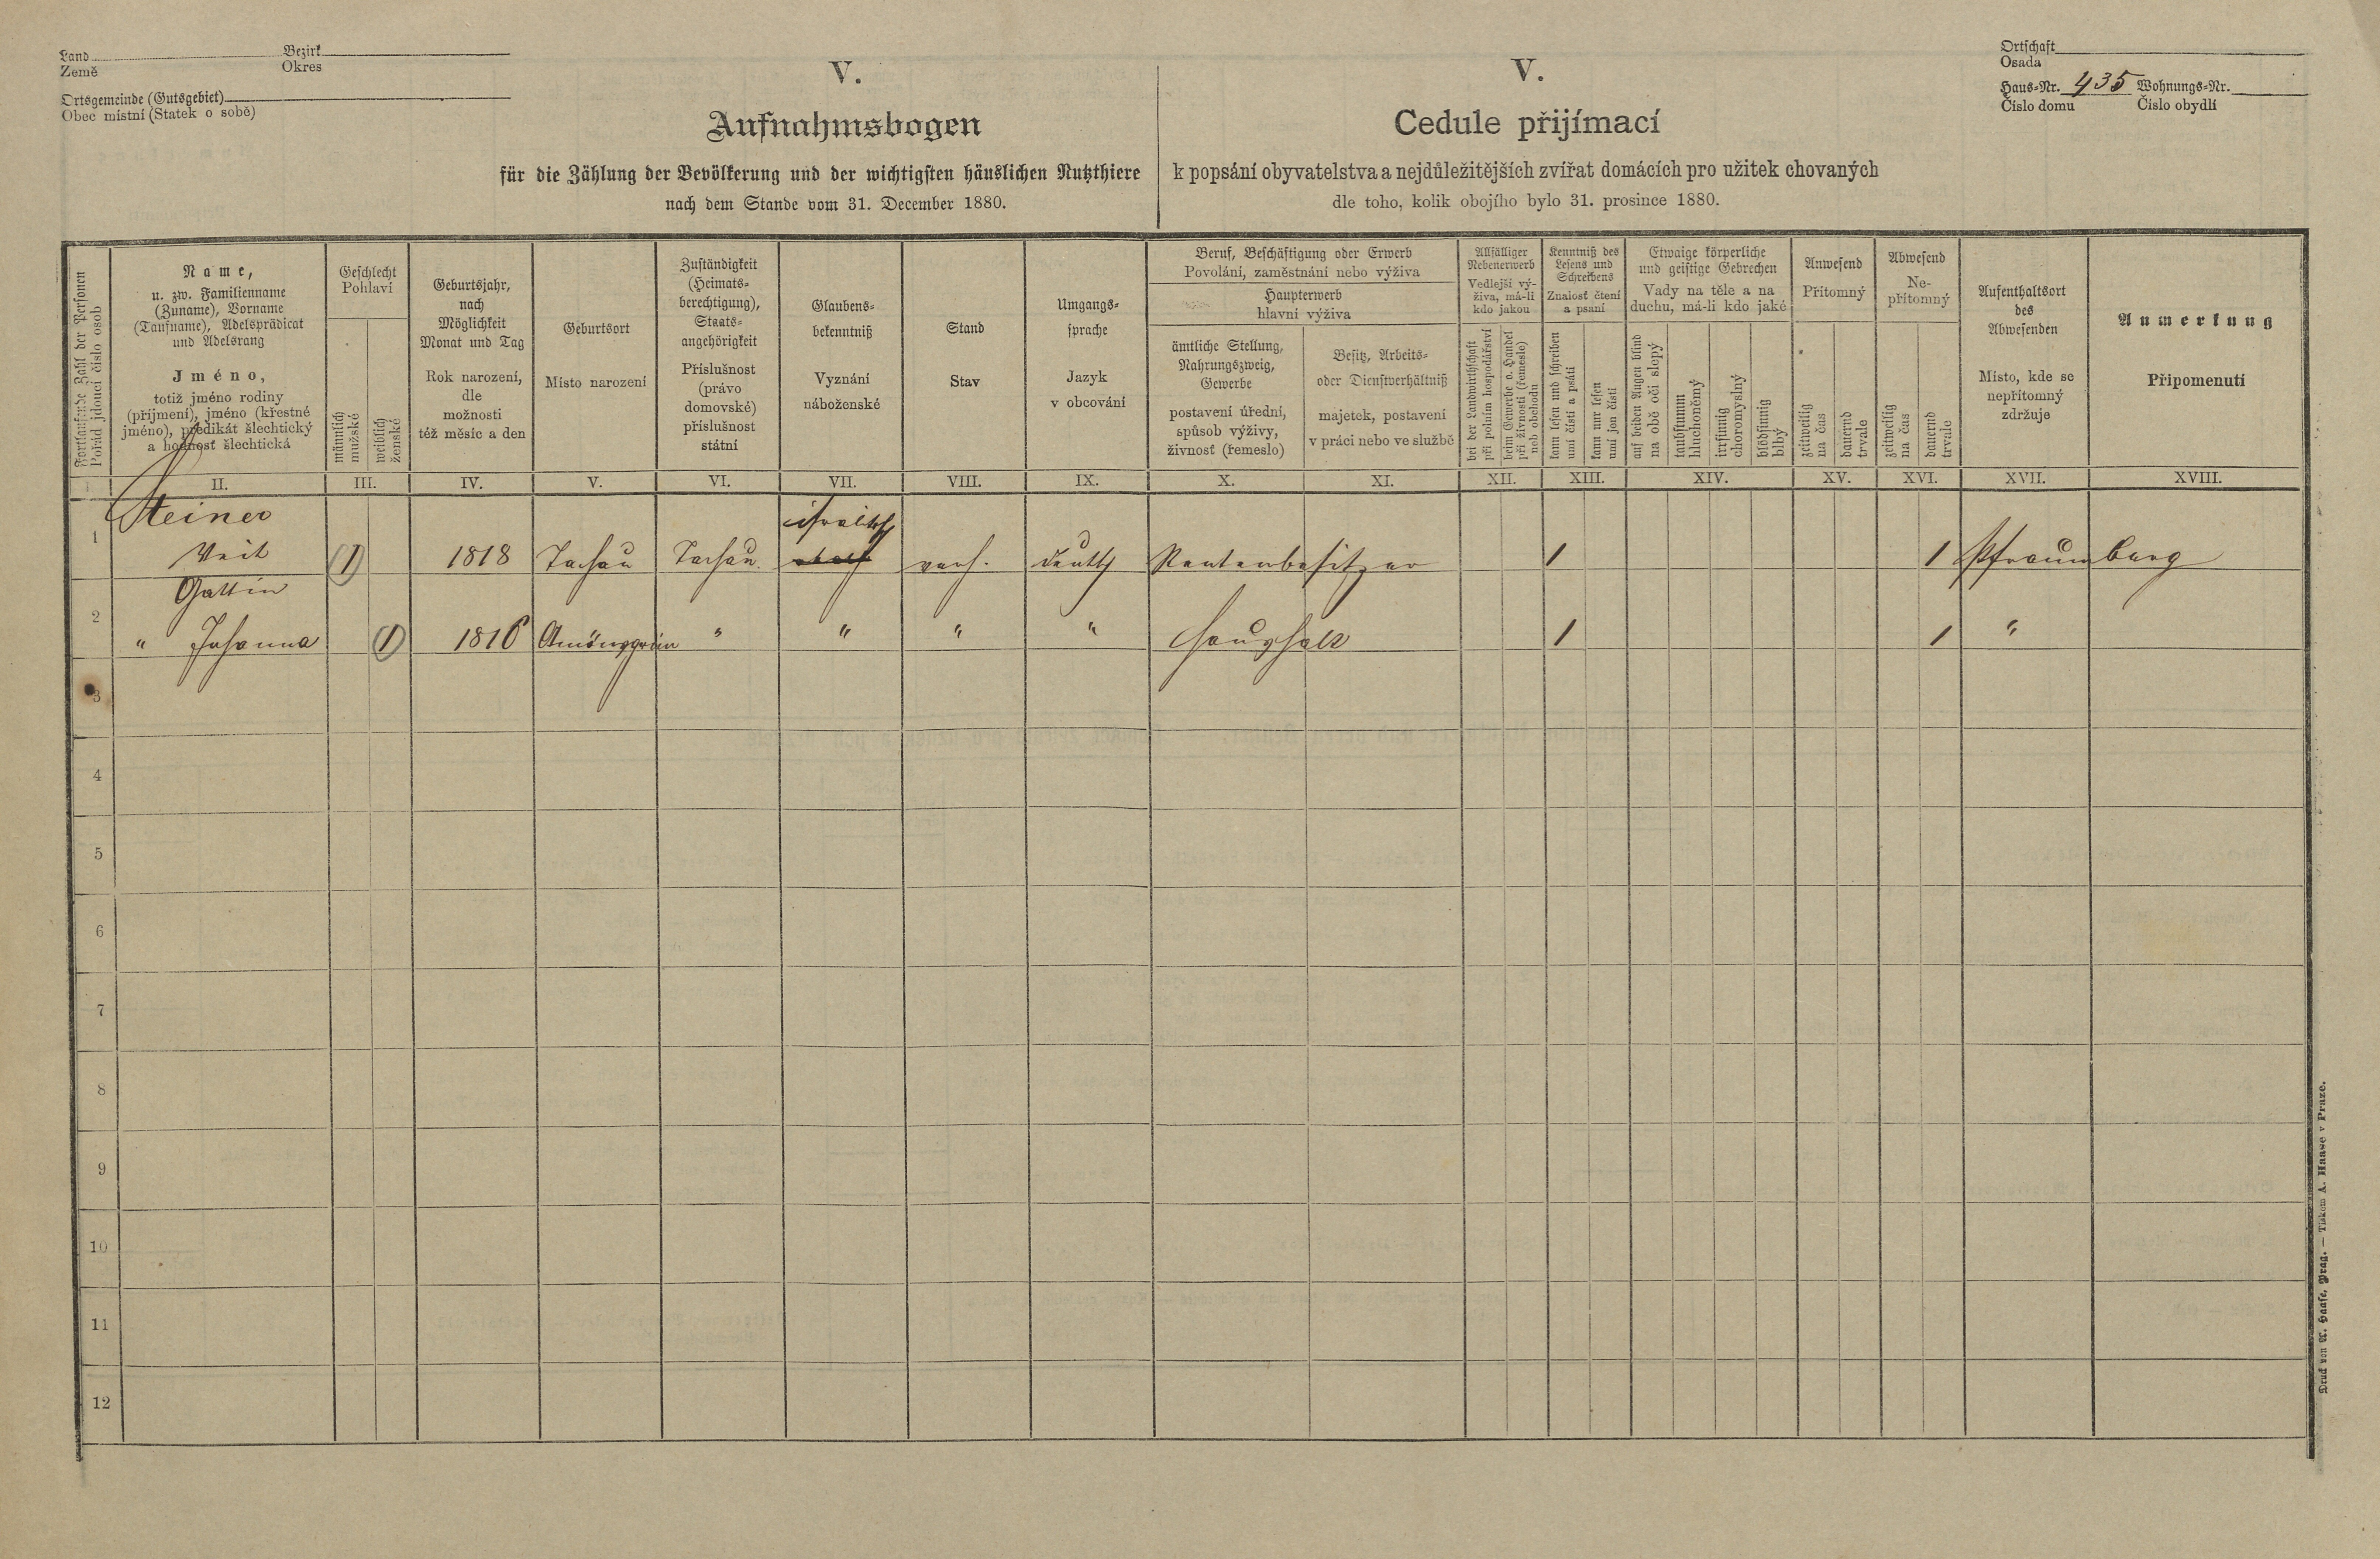 Land
Země
Bezirk
Okres
Ortsgemeinde (Gutsgebiet)
Obec místní (Statek o sobě)
V.
Aufnahmsbogen
für die Zählung der Bevölkerung und der wichtigsten häuslichen Nutzthiere
nach dem Stande vom 31. December 1880.
V.
Cedule přijímací
k popsání obyvatelstva a nejdůležitějších zvířat domácích pro užitek chovaných
dle toho, kolik obojího bylo 31. prosince 1880.
Ortschaft
Osada
Haus-Nr. 435 Wohnungs-Nr.
Číslo domu Číslo obydlí
Fortlaufende Zahl der Personen
Pořád jdoucí číslo osob
Name,
u. zw. Familienname
(Zuname), Vorname
(Taufname), Adelsprädicat
und Adelsrang
Jméno,
totiž jméno rodiny
(příjmení), jméno (křestné
jméno), predikát šlechtický
a hodnost šlechtická
Geschlecht
Pohlaví
männlich
mužské
weiblich
ženské
Geburtsjahr,
nach
Möglichkeit
Monat und Tag
Rok narození,
dle
možnosti
též měsíc a den
Geburtsort
Místo narození
Zuständigkeit
(Heimats-
berechtigung),
Staats-
angehörigkeit
Příslušnost
(právo
domovské)
příslušnost
státní
Glaubens-
bekenntniß
Vyznání
náboženské
Stand
Stav
Umgangs-
sprache
Jazyk
v obcování
Beruf, Beschäftigung oder Erwerb
Povolání, zaměstnání nebo výživa
Haupterwerb
hlavní výživa
ämtliche Stellung,
Nahrungszweig,
Gewerbe
postavení úřední,
spůsob výživy,
živnosť (řemeslo)
Besitz, Arbeits-
oder Dienstverhältniß
majetek, postavení
v práci nebo ve službě
Allfälliger
Nebenerwerb
Vedlejší vý-
živa, má-li
kdo jakou
bei der Landwirthschaft
při polním hospodářství
beim Gewerbe o. Handel
při živnosti (řemesle)
neb obchodu
Kenntniß des
Lesens und
Schreibens
Znalosť čtení
a psaní
kann lesen und schreiben
umí čísti a psáti
kann nur lesen
umí jen čísti
Etwaige körperliche
und geistige Gebrechen
Vady na těle a na
duchu, má-li kdo jaké
auf beiden Augen blind
na obě oči slepý
taubstumm
hluchoněmý
irrsinnig
choromyslný
blödsinnig
blbý
Anwesend
Přítomný
zeitweilig
na čas
dauernd
trvale
Abwesend
Ne-
přítomný
zeitweilig
na čas
dauernd
trvale
Aufenthaltsort
des
Abwesenden
Místo, kde se
nepřítomný
zdržuje
Anmerkung
Připomenutí
I. II. III. IV. V. VI. VII. VIII. IX. X. XI. XII. XIII. XIV. XV. XVI. XVII. XVIII.
Steiner israelitsch
1 Veit 1 1818 Tachau Tachau verh. deutsch Rentenbesitzer 1 1 Pfraumberg
Gattin
2 " Johanna 1 1816 Amönsgrün " " " " Haushalt 1 1 "
3
4
5
6
7
8
9
10
11
12
Druck von A. Haase, Prag. — Tiskem A. Haase v Praze.